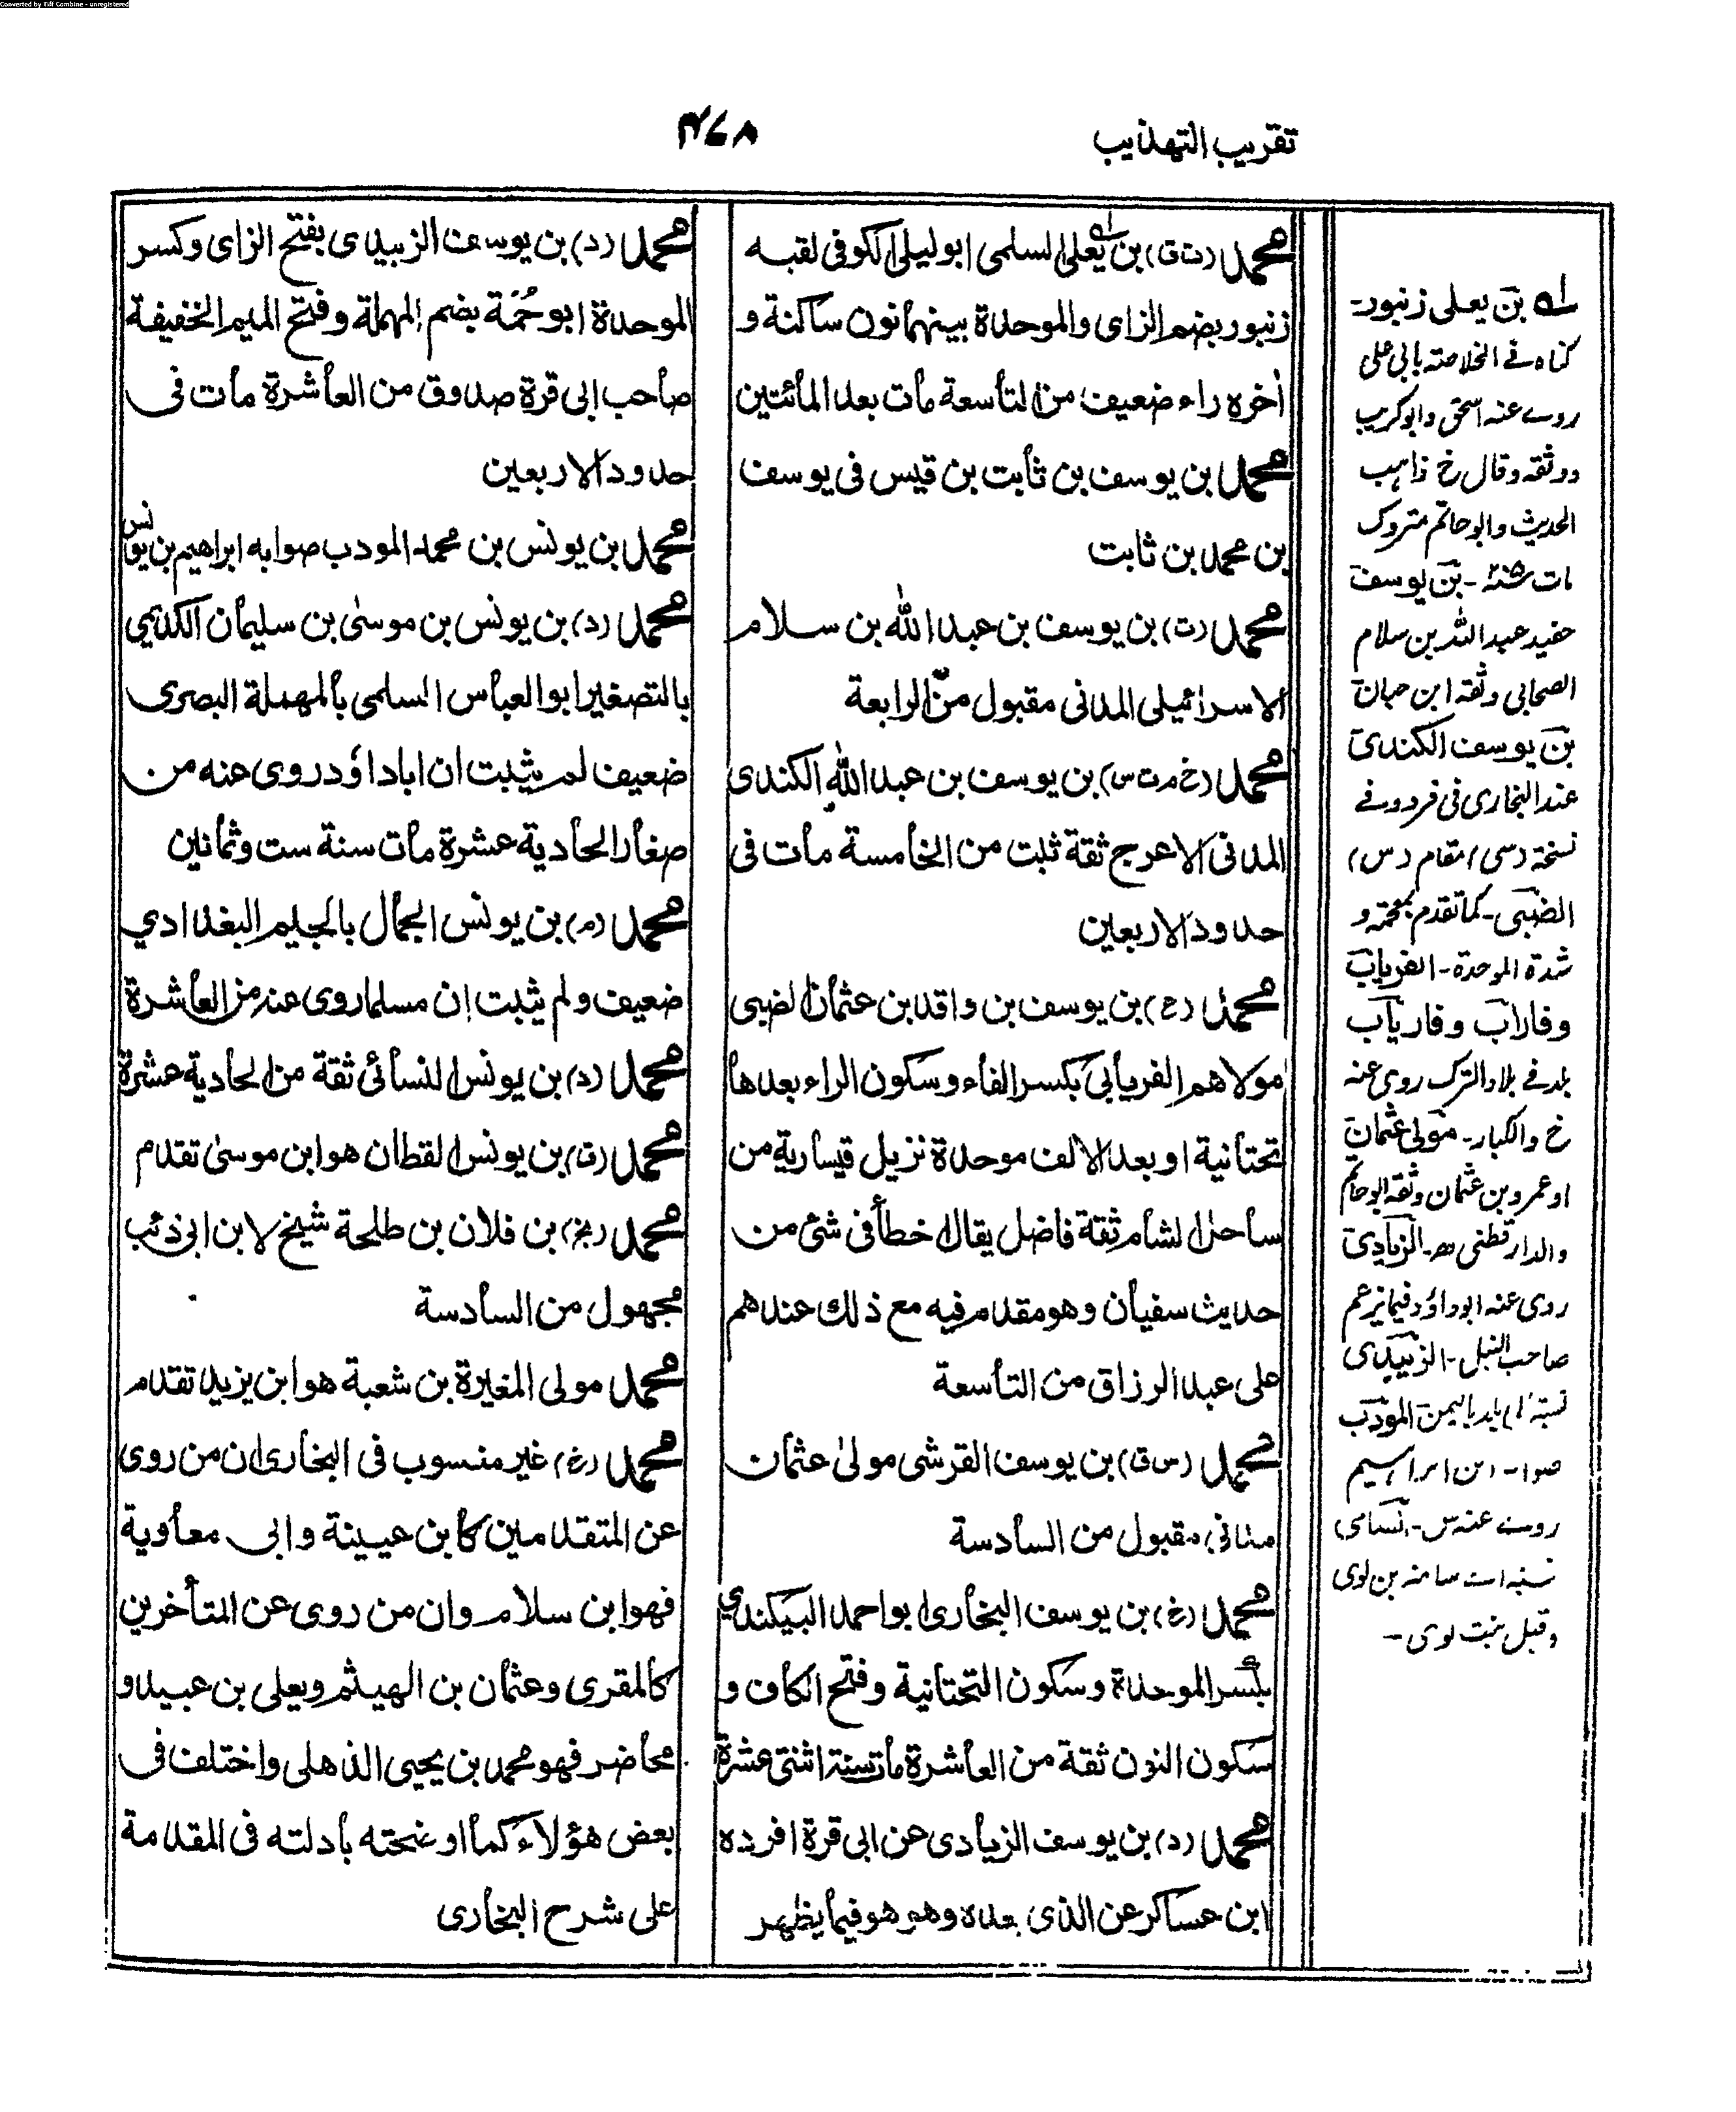 Converted by Tiff Combine - unregistered
تقريب التهذيب
۴۶۸
محمد (ت ق) بن يعلى السلمى ابو ليلى الكوفى لقبه
زنبور بضم الزاى والموحدة بينهما نون ساكنة و
أخره راء ضعيف من التاسعة مات بعد المائتين
محمد بن يوسف بن ثابت بن قيس فى يوسف
بن محمد بن ثابت
محمد (ت) بن يوسف بن عبد الله بن سلام
الاسرائيلى المدنى مقبول من الرابعة
محمد (خ م ت س) بن يوسف بن عبد الله الكندى
المدنى الاعرج ثقة ثبت من الخامسة مات فى
حدود الاربعين
محمد (ع) بن يوسف بن واقد بن عثمان الضبى
مولاهم الفريابى بكسر الفاء وسكون الراء بعدها
تحتانية او بعد الالف موحدة نزيل قيسارية من
ساحل الشام ثقة فاضل يقال اخطأ فى شئ من
حديث سفيان وهو مقدم فيه مع ذلك عندهم
على عبد الرزاق من التاسعة
محمد (س ق) بن يوسف القرشى مولى عثمان
مدنى مقبول من السادسة
محمد (خ) بن يوسف البخارى ابو احمد البيكندي
بكسر الموحدة وسكون التحتانية وفتح الكاف و
سكون النون ثقة من العاشرة مات سنة اثنتى عشرة
محمد (د) بن يوسف الزيادى عن ابى قرة افرده
ابن عساكر عن الذى بعده وهو هو فيما يظهر
محمد (د) بن يوسف الزبيدى بفتح الزاى وكسر
الموحدة ابو حُمَة بضم المهملة وفتح الميم الخفيفة
صاحب ابى قرة صدوق من العاشرة مات فى
حدود الاربعين
محمد بن يونس بن محمد المودب صوابه ابراهيم بن يونس
محمد (د) بن يونس بن موسى بن سليمان الكديمي
بالتصغير ابو العباس السلمى بالمهملة البصرى
ضعيف لم يثبت ان ابا داؤد روى عنه من
صغار الحادية عشرة مات سنة ست وثمانين
محمد (م) بن يونس الجمال بالجيم البغدادي
ضعيف ولم يثبت ان مسلما روى عنه من العاشرة
محمد (د) بن يونس النسائى ثقة من الحادية عشرة
محمد (ق) بن يونس القطان هو ابن موسى تقدم
محمد (بخ) بن فلان بن طلحة شيخ لابن ابى ذئب
مجهول من السادسة
محمد مولى المغيرة بن شعبة هو ابن يزيد تقدم
محمد (خ) غير منسوب فى البخارى ان من روى
عن المتقدمين كابن عيينة وابى معاوية
فهو ابن سلام وان من روى عن المتأخرين
كالمقرى وعثمان بن الهيثم ويعلى بن عبيد و
محاضر فهو محمد بن يحيى الذهلى واختلف فى
بعض هؤلاء كما اوضحته بأدلته فى المقدمة
على شرح البخارى
له بن يعلى زنبور-
كناه فے الخلاصة بابى على
روے عنه اسحق وابو كريب
ووثقه وقال خ ذاهب
الحديث وابو حاتم متروك
مات - بن يوسف
حفيد عبد الله بن سلام
الصحابى وثقه ابن حبان
بن يوسف الكندى
عند البخارى فى فرد وفے
نسخة (سى) مقام (س)
الضبى- كما تقدم بمعجمة و
شدة الموحدة- الفرياب
وفاراب وفارياب
بلد فے بلاد الترك روى عنه
خ والكبار- مولى عثمان
او عمرو بن عثمان وثقه ابو حاتم
والدارقطنى - الزيادى
روى عنه ابو داؤد فيما زعم
صاحب النبل- الزبيدى
نسبة باليمن المودب
ابن ابراهيم
روے عنه س- النسائى
سامة بن لوى
وقيل بنت لوى-